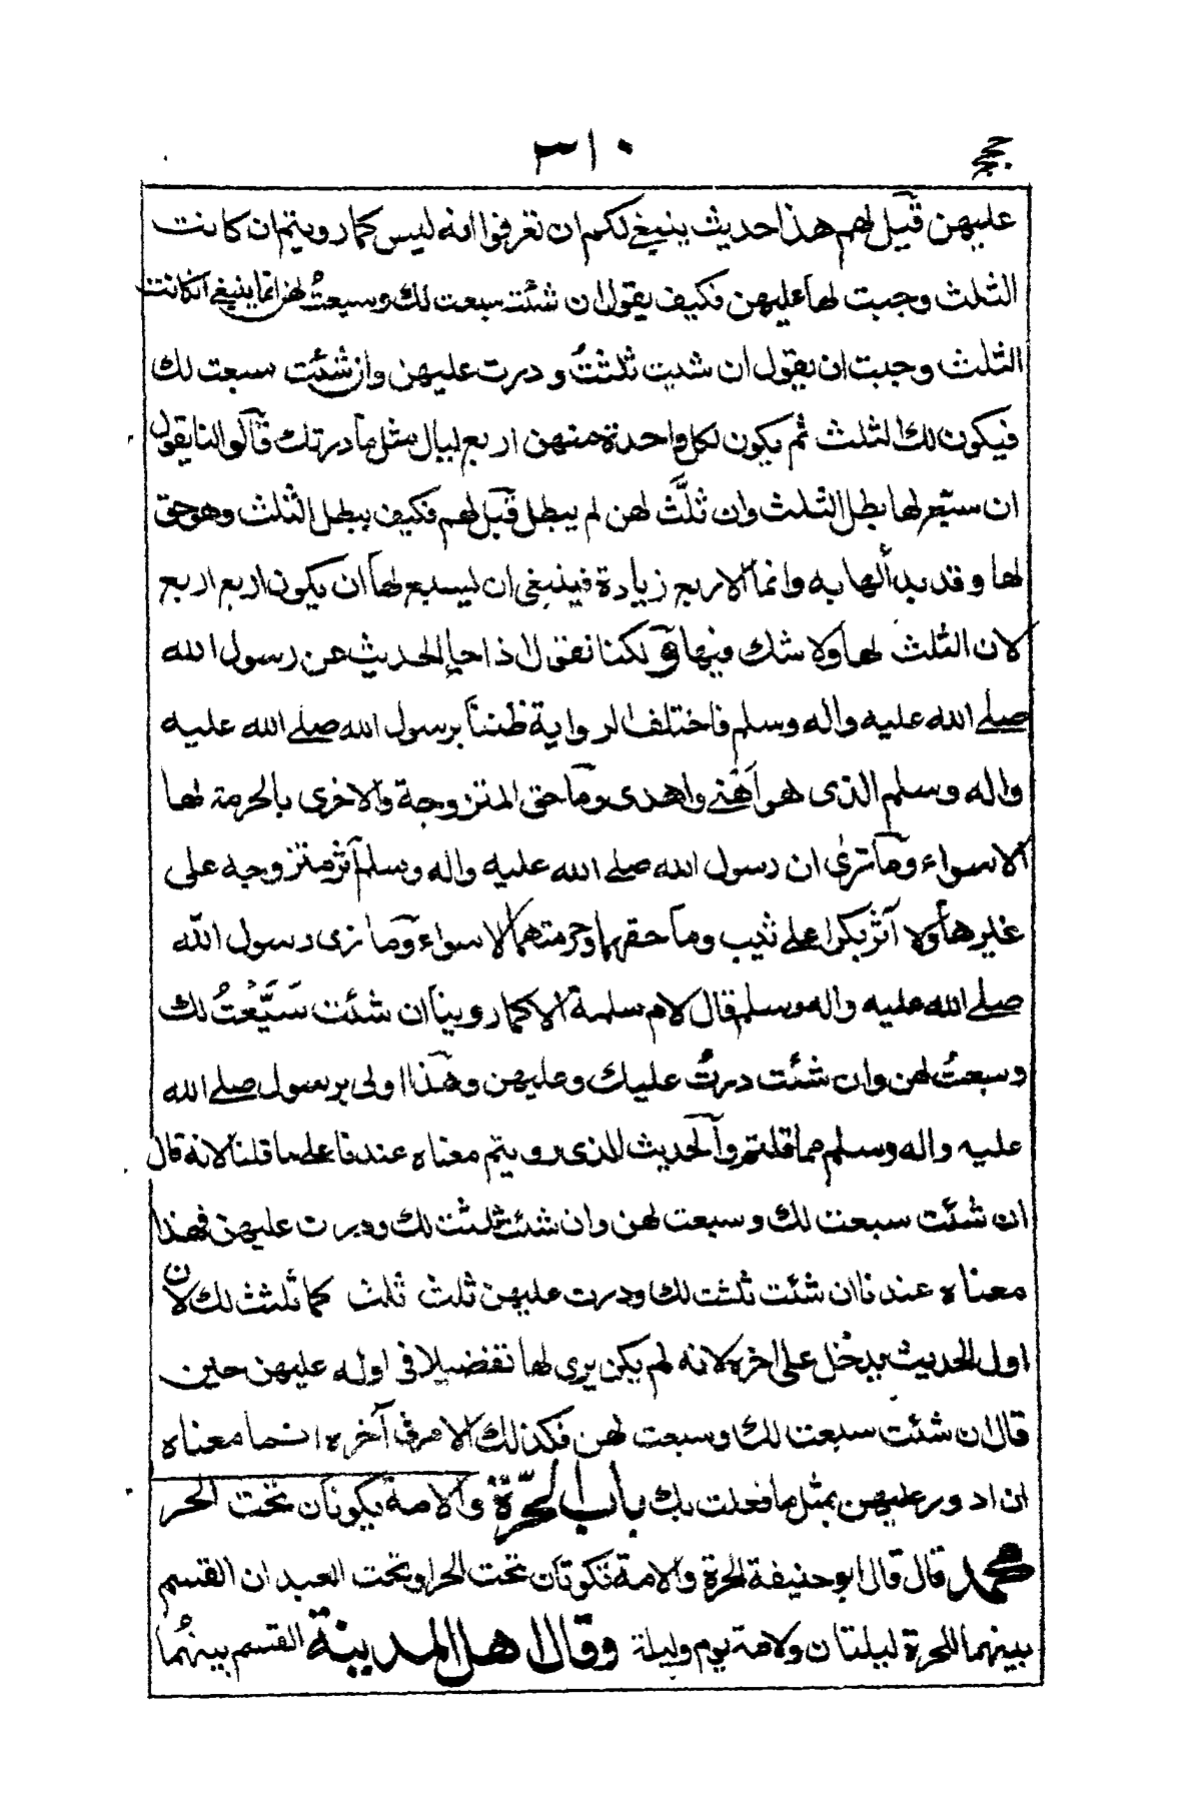 ٣١٠
حجج
عليهن قيل لهم هذا حديث ينبغي لكم ان تعرفوا انه ليس كما رويتم ان كانت
الثلث وجبت لها عليهن فكيف يقول ان شئت سبعت لك وسبعت لهن انما ينبغي انكانت
الثلث وجبت ان يقول ان شيت ثلثت ودرت عليهن وان شئت سبعت لك
فيكون لك الثلث ثم يكون لكل واحدة منهن اربع ليال مثل ما درتك قالوا النا يقول
ان سبّع لها بطل الثلث وان ثلّث لهن لم يبطل قيل لهم فكيف يبطل الثلث وهو حق
لها وقد بدألها به وانما الاربع زيادة فينبغي ان ليسبع لها ان يكون اربع اربع
لان الثلث لها ولا شك فيها ولكنا نقول اذا جاء الحديث عن رسول الله
صلى الله عليه واله وسلم فاختلف الرواية ظننا برسول الله صلى الله عليه
واله وسلم الذى هو اهنى واهدى وما حق المتزوجة والاخرى بالحرمة لها
الا سواء وما ترى ان رسول الله صلى الله عليه واله وسلم آثر متزوجيه على
غيرها ولا آثر بكرا على ثيب وما حقهما وحرمتهما الا سواء وما نرى رسول الله
صلى الله عليه واله وسلم قال لام سلمة الا كما روينا ان شئت سَبَّعْتُ لك
وسبعتُ لهن وان شئت درتُ عليك وعليهن وهذا اولى برسول صلى الله
عليه واله وسلم مما قلتم والحديث الذى رويتم معناه عندنا على ما قلنا لانه قال
ان شئت سبعت لك وسبعت لهن وان شئت ثلثت لك ودرت عليهن فهذا
معناه عندنا ان شئت ثلثت لك ودرت عليهن ثلث ثلث كما ثلثت لك لان
اول الحديث يدخل على اخره لانه لم يكن يرى لها تفضيلا فى اوله عليهن حين
قال ان شئت سبعت لك وسبعت لهن فكذلك الامر فى آخره انما معناه
ان ادور عليهن بمثل ما فعلت بك باب الحرّة والامة يكونان تحت الحر
محمد قال قال ابو حنيفة الحرة والامة تكونان تحت الحر او تحت العبد ان القسم
بينهما للحرة ليلتان ولامة يوم وليلة وقال اهل المدينة القسم بينهما